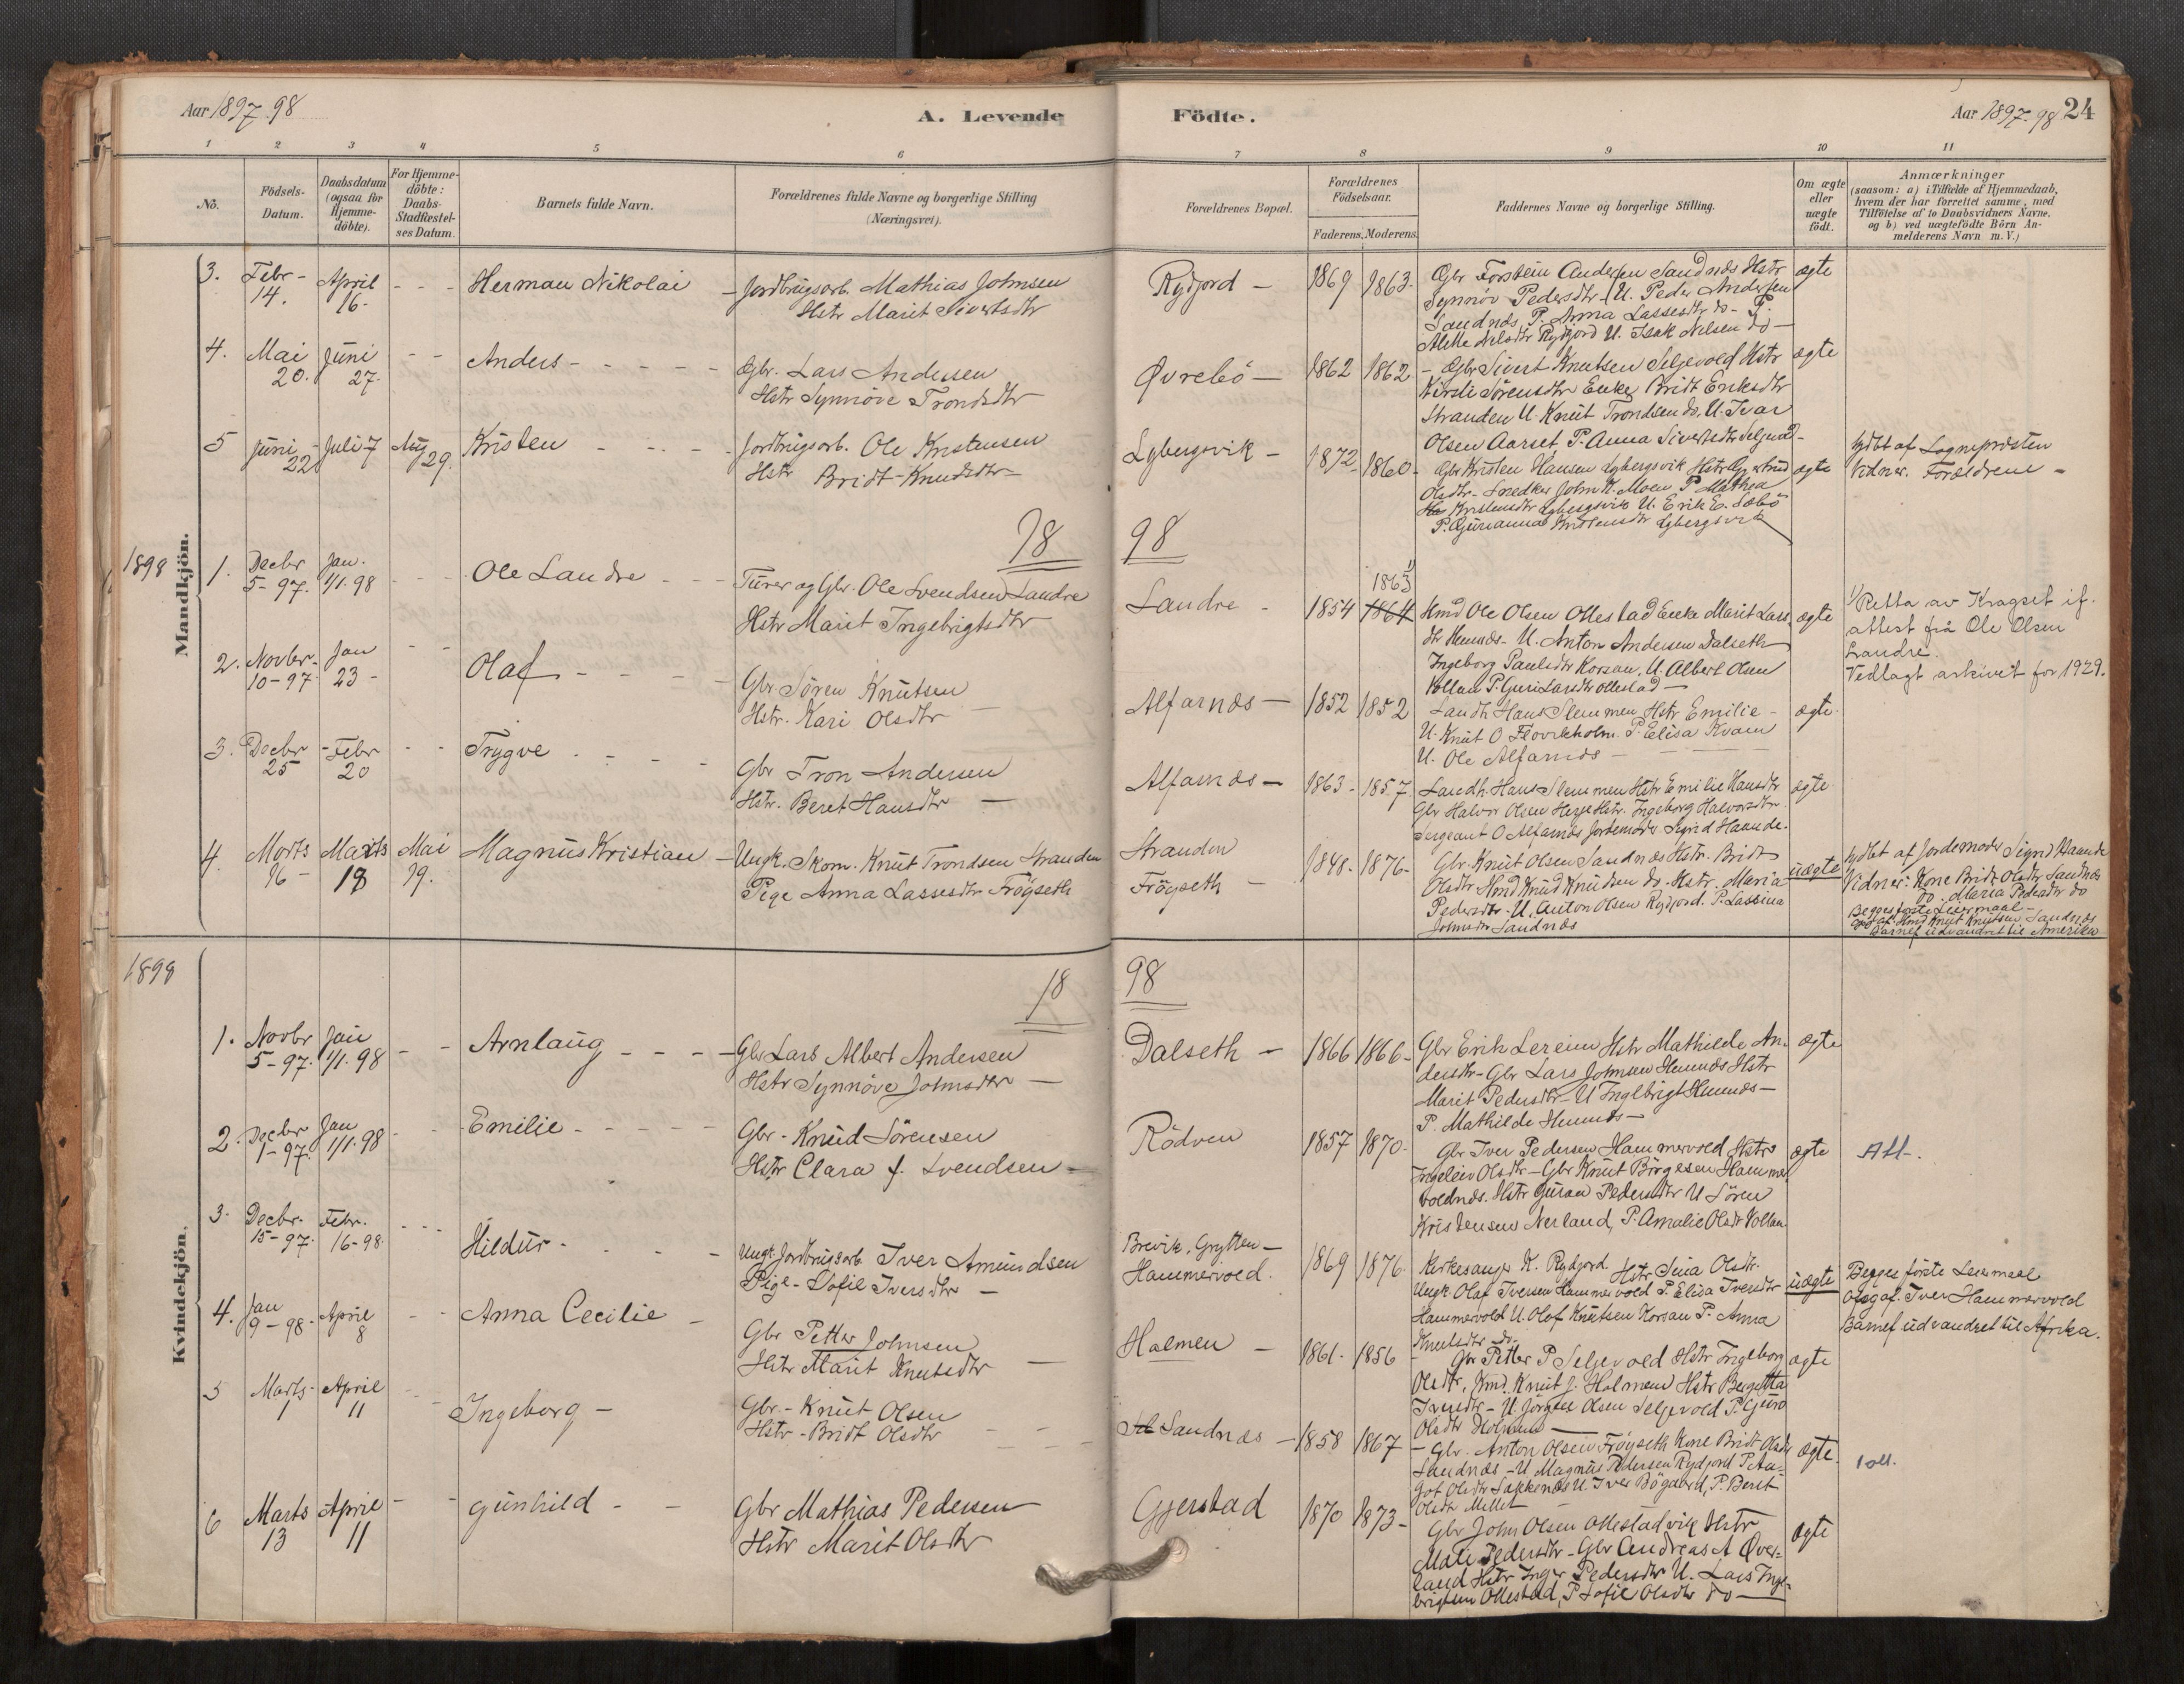 Aar 1897-98
A. Levende
Födte.
Aar 1897-98 24
1 2 3 4 5 6 7 8 9 10 11
No.
Födsels-Datum.
Daabsdatum (ogsaa for Hjemme-döbte).
For Hjemme-döbte: Daabs-Stadfæstel-ses Datum.
Barnets fulde Navn.
Forældrenes fulde Navne og borgerlige Stilling (Næringsvei).
Forældrenes Bopæl.
Forældrenes Födselsaar.
Faderens. Moderens.
Faddernes Navne og borgerlige Stilling.
Om ægte eller uægte födt.
Anmærkninger
(saasom: a) i Tilfælde af Hjemmedaab,
hvem der har forrettet samme, med
Tilföielse af to Daabsvidners Navne.
og b) ved uægtefödte Börn An-
melderens Navn m. V.)
Mandkjön.
3. Febr- 14. April 16- - - - Herman Nikolai - Jordbrugsarb. Mathias Johnsen
Hstr Marit Sivertsdtr
Rydjord - 1869 1863-
Gbr Torstein Andersen Sandnæs Hstr
Synnöv Pedersdtr - U. Peder Andersen
Sandnæs P. Anna Lassesdtr do - P.
Alette Nelsdtr Rydjord U. Isak Nilsen do -
ægte
4. Mai 20. Juni 27- - - Anders - - - - - Gbr. Lars Andersen
Hstr Synnöve Trondsdtr
Øvrebö - 1862 1862
- Gbr Sivert Knutsen Seljevold Hstr
Kirsti Sörensdtr Enke Bridt Eriksdtr
Stranden U. Knut Trondsen do. U. Ivar
Olsen Aarset, P. Anna Sivertsdtr Seljevd-
ægte
5 Juni 22 - Juli 7 Aug 29. Kristen - - - - Jordbrugsarb. Ole Kristensen
Hstr Bridt Knudsdtr -
Lybergsvik - 1872 1860-
Gbr Kristen Hansen Lybergsvik Hstr Gjertrud
Olsdtr - Snedker John K. Moen P Mathea
Kristensdtr Lybergsvik U. Erik E. Sæbö
P. Gurianna Kristensdtr Lybergsvik
ægte
hjdbt af Sognepræsten
Vidner. Forældrene -
18 98
1898
1. Decbr 5-97. Jan. 1/1.98 - - - Ole Landre - - - Gbr. Ole Svendsen Landre
Hstr Marit Ingebrigtsdtr
Landre - 1854 1864 1863 1)
Hmd Ole Olsen Ollestad Enke Marit Lars
dtr Hennæs - U. Anton Andersen Dalseth
Ingeborg Paulsdtr Korsan, U. Albert Olsen
Vollan P. Guri Larsdtr Ollestad -
ægte
1) Retta av Kragset if.
attest frå Ole Olsen
Landre.
Vedlagt arkivet for 1929.
2. Novbr- 10-97 Jan 23 - - - Olaf - - - - - Gbr Sören Knutsen
Hstr. Kari Olsdtr -
Alfarnæs - 1852 1852
Landh Hans Slemmen Hstr Emilie -
U. Knut O Flovikholm. P. Elisa Kvam
U. Ole Alfarnæs -
ægte
3. Decbr 25 - Febr 20 - - Trygve - - - - Gbr Tron Andersen
Hstr. Beret Hansdtr -
Alfarnæs - 1863 - 1857.
Landh. Hans Slemmen Hstr Emilie Hansdtr
Gbr Halvor Olsen Herje Hstr. Ingeborg Halvorsdtr
Sergeant O Alfarnæs Jordemoder Sigrid Haande.
ægte
4. Marts 16 - Marts 18 Mai 19. Magnus Kristian - Ungk. Skom. Knut Trondsen Stranden
Pige Anna Lassesdtr Fröyseth
Stranden
Fröyseth - 1848- 1876-
Gbr. Knut Olsen Sandnæs Hstr. Bridt
Olsdtr Hmd Knud Knudsen do. Hstr. Maria
Pedersdtr - U. Anton Olsen Rydjord. P. Lassina
Johnsdtr Sandnæs
uægte
hjdbt af Jordemoder Sigrid Haande
Vidner: Kone Bridt Olsdtr Sandnæs
do - Maria Pedersdtr do
Begges förste Leiermaal -
Opg af. Hmd Knut Knutsen Sandnæs
Barnef. udvandret til Amerika
18 98
1898
Kvindekjön.
1. Novbr 5-97. Jan 1/1.98 - - Arnlaug - - - - Gbr Lars Albert Andersen
Hstr Synnöve Johnsdtr -
Dalseth - 1866 1866-
Gbr Erik Lereim Hstr Mathilde An-
dersdtr - Gbr Lars Johnsen Hennæs Hstr
Marit Pedersdtr - U Ingebrigt Hennæs -
P. Mathilde Hennæs -
ægte
2. Decbr 1-97. Jan 1/1.98 - - Emilie - - - - - Gbr - Knud Sörensen
Hstr Clara f. Svendsen -
Rödven 1857 1870-
Gbr Iver Pedersen Hammervold Hstr
Ingeleiv Olsdtr - Gbr Knut Börgesen Hammer
voldnæs. Hstr Guran Pedersdtr U Sören
Kristensen Nerland, P. Amalie Olsdtr Vollan
ægte
Att-.
3. Decbr. 15-97. Febr. 16-98 - - - Hildur - - - - Ungk. Jordbrugsarb Iver Amundsen
Pige - Sofie Iversdtr -
Brevik, Grytten -
Hammervold. 1869 1876
Kirkesanger K. Rydjord Hstr Sina Olsdtr.
Ungk. Olaf Iversen Hammervold P. Elisa Iversdtr
Hammervold U. Olaf Knutsen Korsan P. Anna
Knutsdtr do.
uægte
Begges förste Leiermaal
Opg af. Iver Hammervold
Barnef udvandret til Afrika.
4. Jan 9-98. April 8 - - Anna Cecilie - Gbr Petter Johnsen
Hstr Marit Knutsdtr -
Holmen - 1861- 1856
Gbr Petter P Seljevold Hstr Ingeborg
Olsdtr, Hmd. Knut J. Holmen Hstr Bergetta
Iversdtr - U. Jörgen Olsen Seljevold P. Guro
Olsdtr Holmen -
ægte
5 Marts 1 April 11 - - Ingeborg - Gbr. - Knut Olsen
Hstr - Bridt Olsdtr - - -
Sandnæs - 1858 1867
- Gbr. Anton Olsen Fröyseth Kone Bridt Olsdtr
Sandnæs - U. Magnus Pedersen Rydjord
Olsdtr U. Iver Bögaard, P. Berit
Olsdtr
ægte.
1 att.
6 Marts 13 April 11 - - Gunhild - - Gbr Mathias Pedersen
Hstr Marit Olsdtr
Gjerstad 1870 1873-
Gbr John Olsen Ollestadvik Hstr
Mali Pedersdtr - Gbr Andreas A Over-
land Hstr Inger Pedersdtr U. Lars Inge-
brigtsen Ollestad, P Sofie Olsdtr do -
ægte